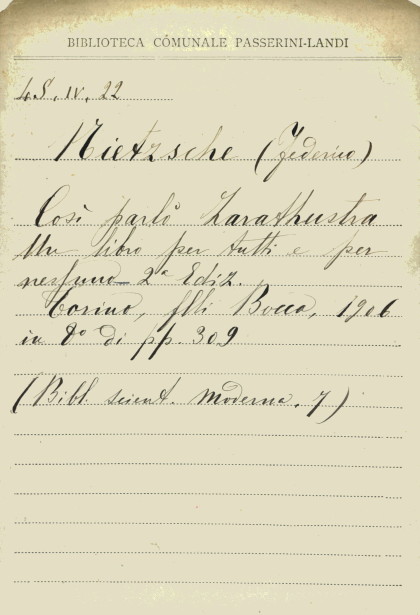 BIBLIOTECA COMUNALE PASSERINI-LANDI
4S. IV. 22
Nietzsche (Federico)
Così parlò Zarathustra
Un libro per tutti e per
nessuno_ 2ª Ediz.
Torino, flli Bocca, 1906
in 8º di pp. 309
(Bibl. scient. moderna. 7)